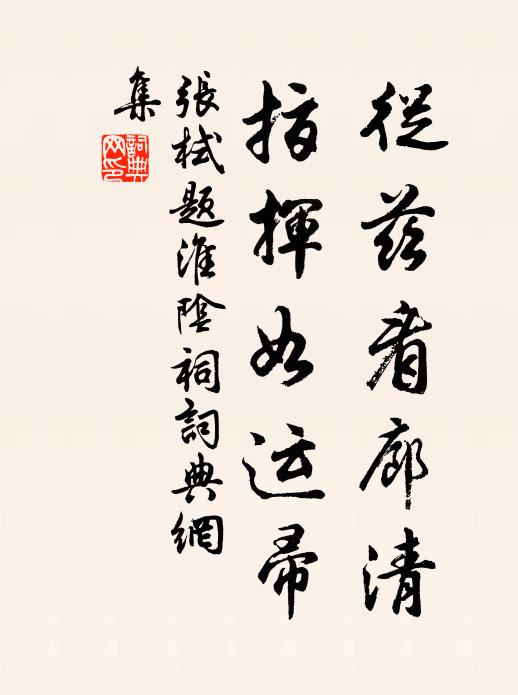 從茲看廓清
指揮如运帚
張栻題淮陰祠詞典網
集
詞典网印